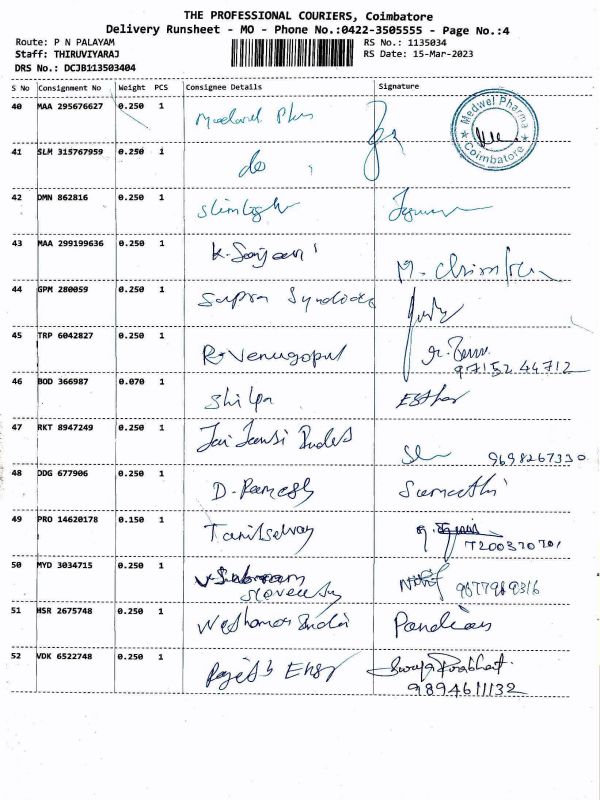 THE PROFESSIONAL COURIERS, Coimbatore
Delivery Runsheet - MO - Phone No.:0422-3505555 - Page No.:4
Route: P N PALAYAM RS No.: 1135034
Staff: THIRUVIYARAJ RS Date: 15-Mar-2023
DRS No.: DCJB113503404
S No Consignment No Weight PCS Consignee Details Signature
40 MAA 295676627 0.250 1 Medwel Pharma Coimbatore
41 SLM 315767959 0.250 1 do
42 DMN 862816 0.250 1
43 MAA 299199636 0.250 1 K. Sanjeevi M.
44 GPM 280059 0.250 1 Supra
45 TRP 6042827 0.250 1 R. Venugopal
97152 44712
46 BOD 366987 0.070 1 Shilpa Esther
47 RKT 8947249 0.250 1 Jai 9698267330
48 DDG 677906 0.250 1 D. Ramesh Sumathi
49 PRO 14620178 0.150 1 Tamilselvan
7200370701
50 MYD 3034715 0.250 1
51 HSR 2675748 0.250 1 India Pandian
52 VDK 6522748 0.250 1 Rajesh Surya Prabhat
9894611132